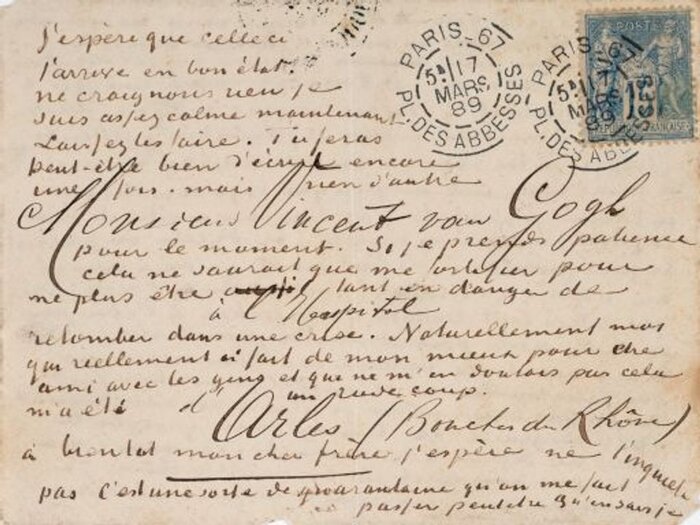 J'espère que celle ci
t'arrive en bon état.
ne craignons rien je
suis assez calme maintenant.
Laissez les faire. Tu feras
peut-être bien d'écrire encore
une fois. mais rien d'autre
Monsieur Vincent van Gogh
pour le moment. Si je prends patience
cela ne saurait que me fortifier pour
ne plus être tant en danger de
à l'Hospital
retomber dans une crise. Naturellement moi
qui reellement ai fait de mon mieux pour être
ami avec les gens et que ne m'en doutais pas cela
m'a été un rude coup.
d'Arles (Bouches du Rhône)
à bientot mon cher frère j'espère ne t'inquiete
pas c'est une sorte de quarantaine qu'on me fait
passer peutetre qu'en sais je
PARIS-67
5E/17
MARS
89
PL. DES ABBESSES
PARIS-67
MARS
89
PL. DES ABBESSES
POSTE
15
FRANÇAISE